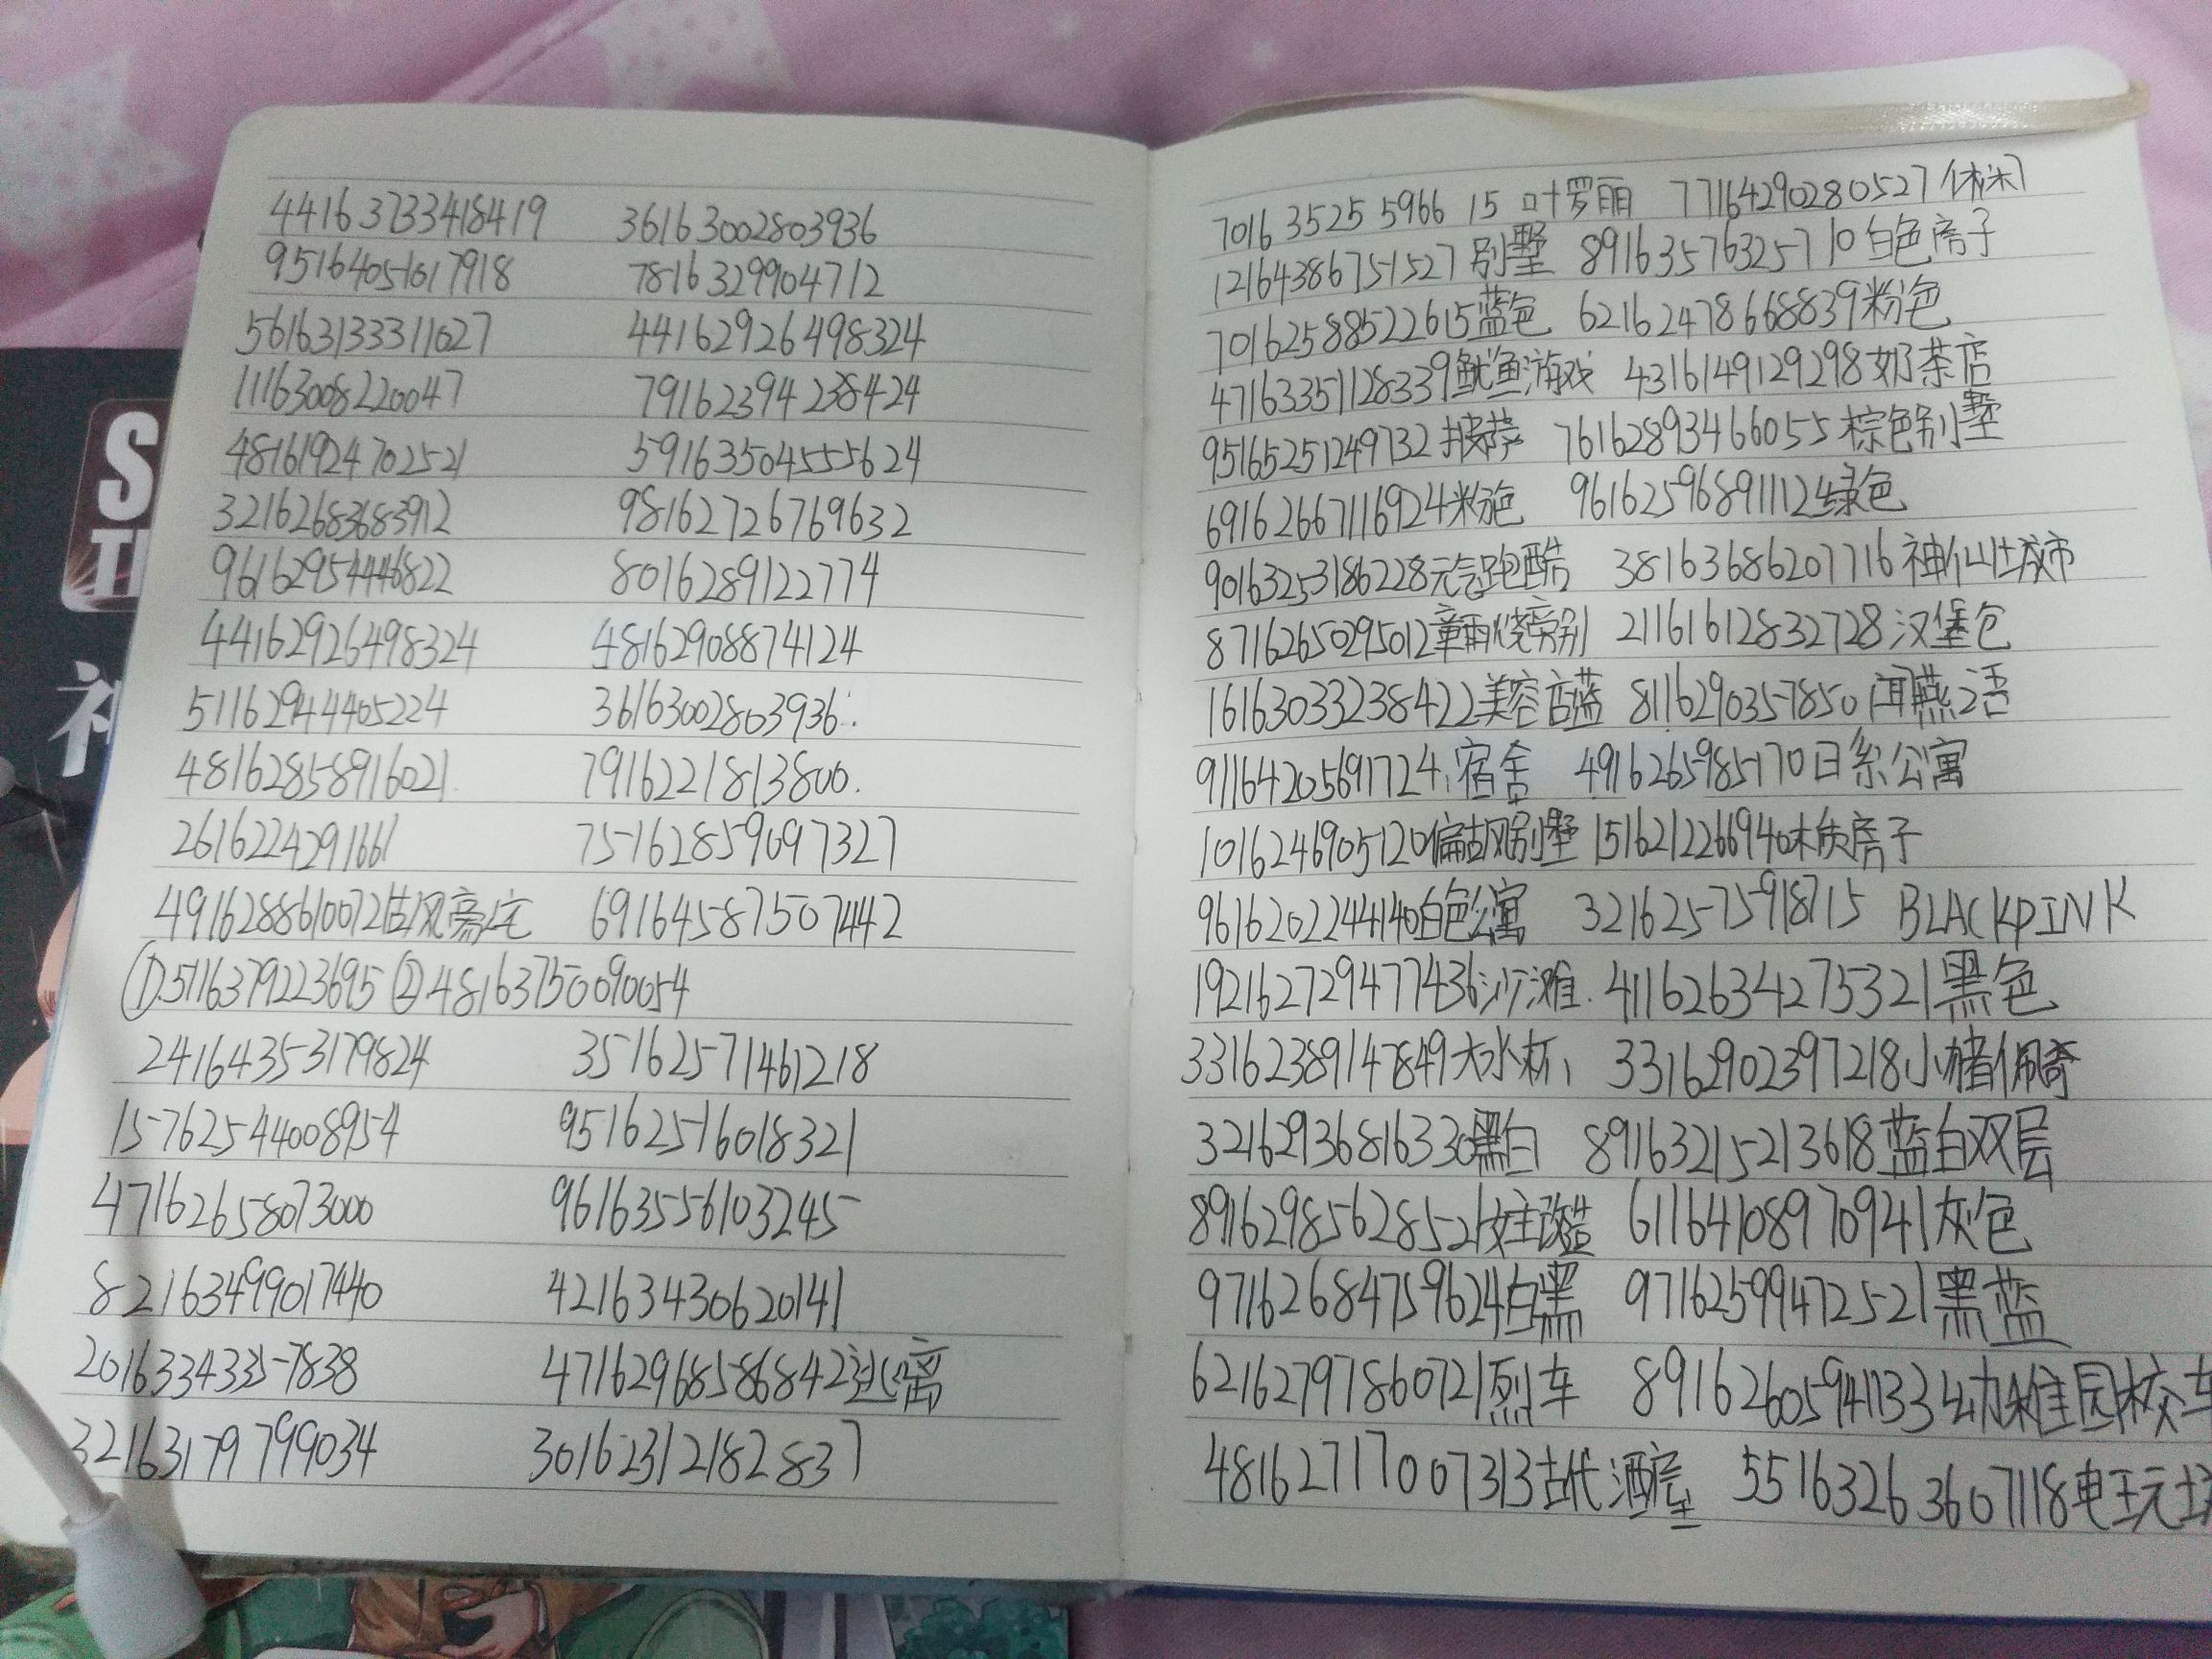 44163733418419 36163002803936
95164051017918 78163299904712
56163133311027 44162926498324
1116300822 0047 79162394238424
48161924702521 59163504555624
32162683683912 98162726769632
96162954446822 8016289122774
44162926498324 48162908874124
51162944405224 36163002803936
48162858916021 7916221813800.
2616224291661 75162859097327
49162886100721古风豪宅 69164587507442
①5116379223695 ②48163750090054
24164353179824 35162571461218
15762544008954 95162516018321
47162658073000 96163556103245
82163499017440 42163430620141
20163343357838 47162968586842逃离
32163179799034 30162312182837
70163525596615 叶罗丽 77164290280527休闲
12164386751527别墅 89163576325710白色房子
70162588522615蓝色 62162478668839粉色
47163351128339鱿鱼游戏 4316149129298奶茶店
95165251249732披萨 76162893466055棕色别墅
69162667116924粉色 96162596891112绿色
90163253186228元气跑酷 38163686207716神仙城市
87162650295012童雨烧旁别 21161612832728汉堡包
16163033238422美容店蓝 81162903578501耳燕2语
91164205691724宿舍 4916265985170日系公寓
1016246905120偏古风别墅 1516212266940木质房子
96162022441 40白色公寓 32162575918715 BLACKPINK
192162729477436沙滩 41162634275321黑色
33162389147849大水杯 33162902397218小猪佩奇
32162936816330黑白 89163215213618蓝白双层
89162985628521女主改造 61164108970941灰色
97162684759624白黑 97162599472521黑蓝
62162797860721烈车 89162605941133幼稚园校车
48162717007313古代酒屋 55163263607118电玩